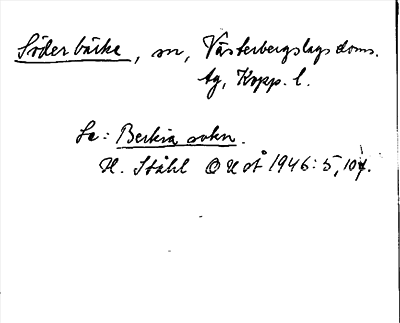 Söderbärke, sn, Västerbergslags doms.
tg, Kopp. l.
Se: Berkia sokn.
H. Ståhl OUÅ 1946: 5, 10